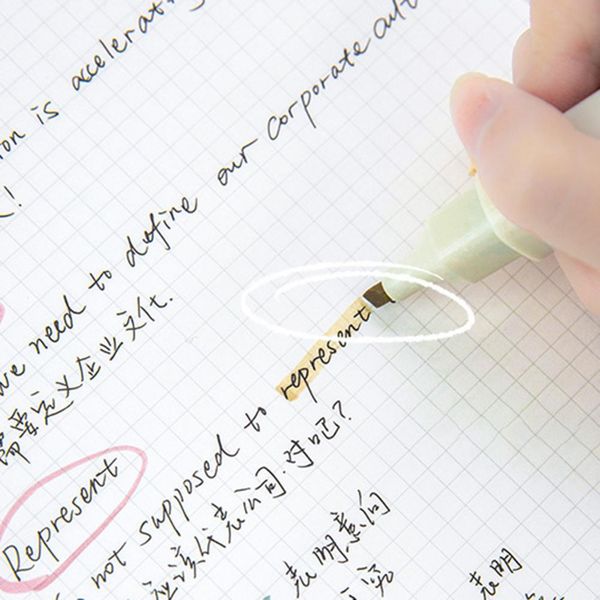 is accelerating
we need to define our corporate
需要定义企业文化.
Represent
not supposed to represent
应该代表公司.对吧?
表明意向
表明